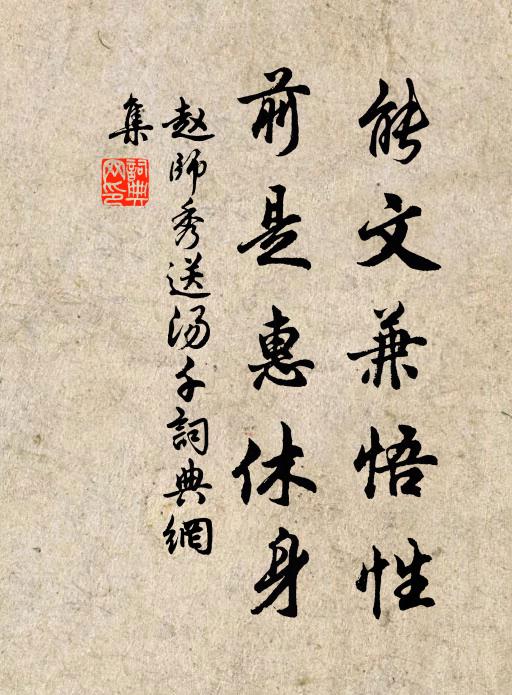 能文兼悟性
前是惠休身
赵師秀送汤千詞典網
集
詞典網印